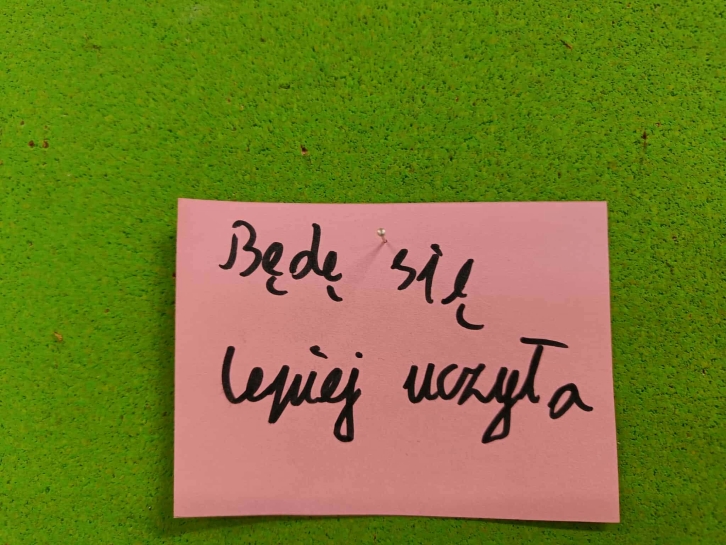 Będę się
lepiej uczyła